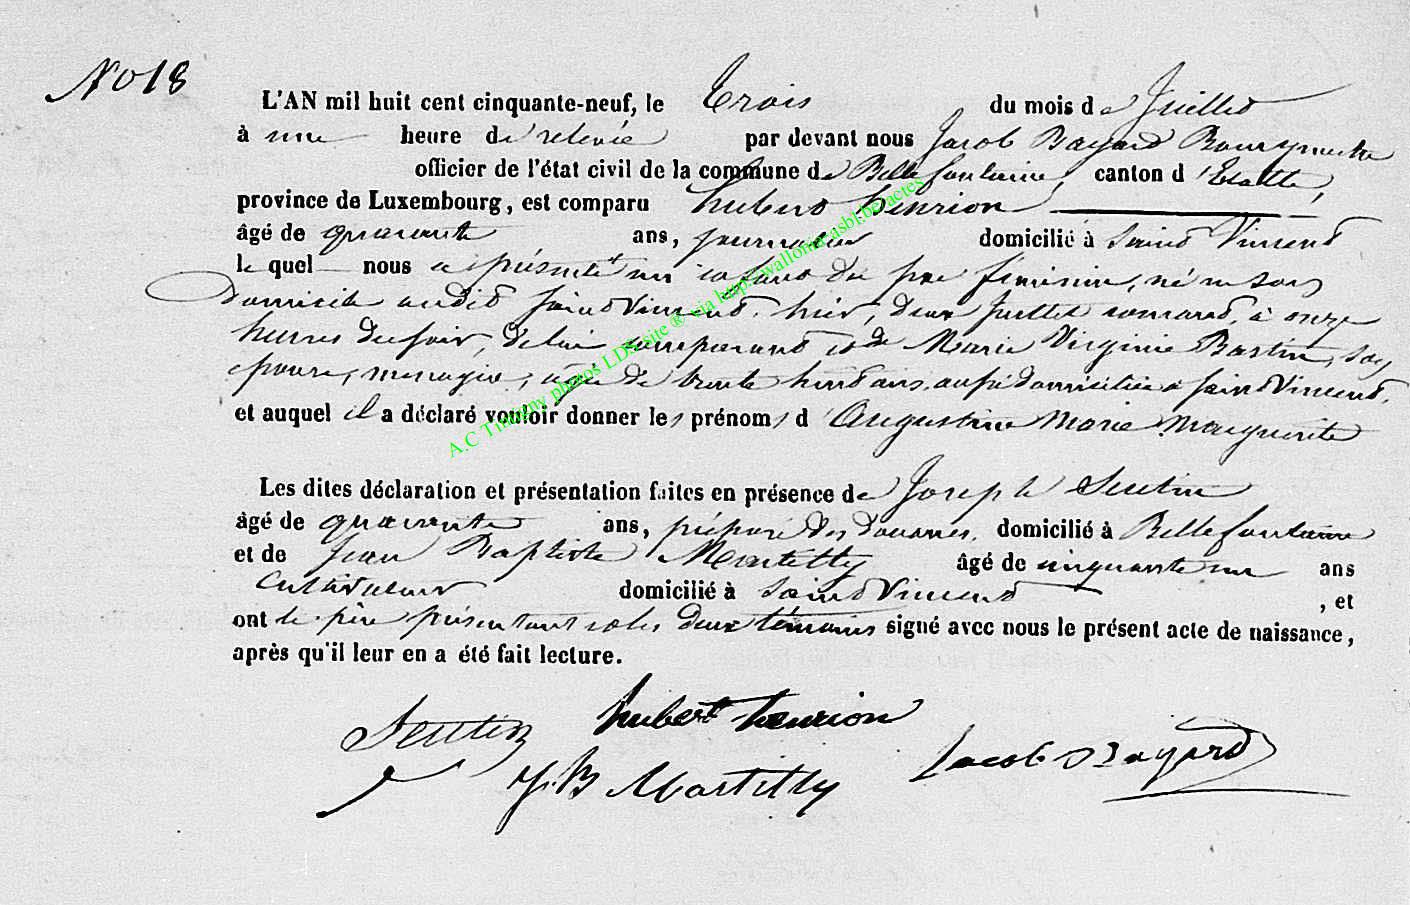 No 18
L'AN mil huit cent cinquante-neuf, le trois du mois de Juillet
à une heure de relevée par devant nous Jacob Bayard Bourgmestre
officier de l'état civil de la commune de Bellefontaine, canton d'Etalle,
province de Luxembourg, est comparu hubert henrion
âgé de quarante ans, journalier domicilié à Saint Vincent
le quel nous a présenté un enfant du sexe féminin, né en son
domicile audit Saint Vincent, hier, deux Juillet courant, à onze
heures du soir, de lui comparant et de Marie Virginie Bastin, son
épouse, ménagère, âgée de trente huit ans, aussi domiciliée à Saint Vincent,
et auquel il a déclaré vouloir donner les prénoms d'Augustine Marie Marguerite
Les dites déclaration et présentation faites en présence de Joseph Seutin
âgé de quarante ans, préposé des douanes, domicilié à Bellefontaine
et de Jean Baptiste Martilly âgé de cinquante un ans
cultivateur domicilié à Saint Vincent, et
ont le père présentant et les deux témoins signé avec nous le présent acte de naissance,
après qu'il leur en a été fait lecture.
Seutin hubert henrion
J.B Martilly Jacob Bayard
A.C Tintigny photos LDS site ® via http://wallonia.asbl.be/actes